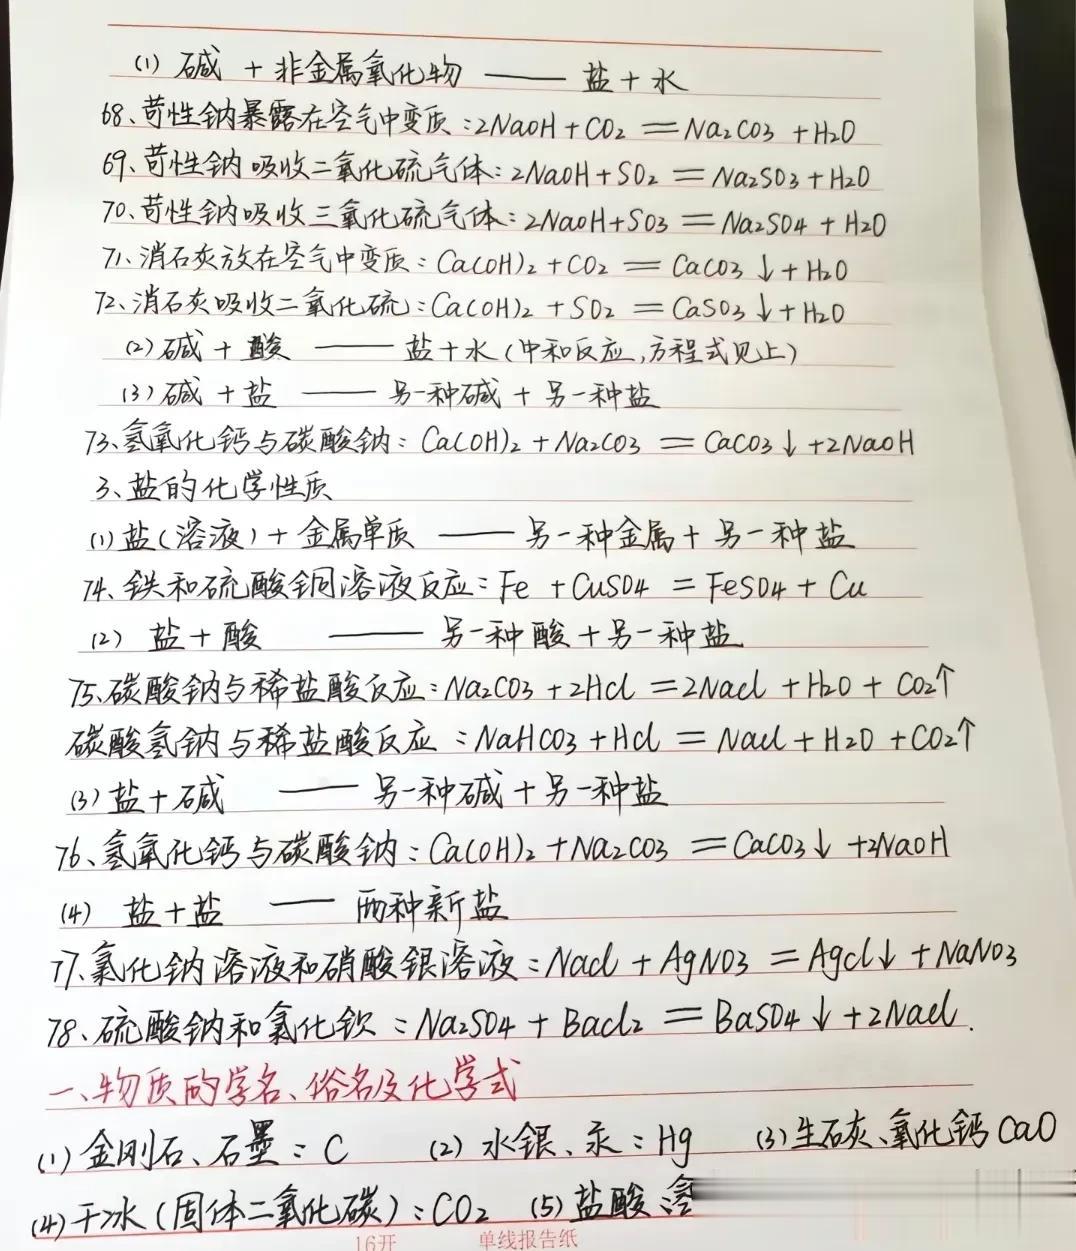 (1) 碱 + 非金属氧化物 —— 盐 + 水
68、苛性钠暴露在空气中变质:2NaOH + CO2 = Na2CO3 + H2O
69、苛性钠吸收二氧化硫气体:2NaOH + SO2 = Na2SO3 + H2O
70、苛性钠吸收三氧化硫气体:2NaOH + SO3 = Na2SO4 + H2O
71、消石灰放在空气中变质:Ca(OH)2 + CO2 = CaCO3↓ + H2O
72、消石灰吸收二氧化硫:Ca(OH)2 + SO2 = CaSO3↓ + H2O
(2) 碱 + 酸 —— 盐 + 水(中和反应,方程式见上)
(3) 碱 + 盐 —— 另一种碱 + 另一种盐
73、氢氧化钙与碳酸钠:Ca(OH)2 + Na2CO3 = CaCO3↓ + 2NaOH
3、盐的化学性质
(1) 盐(溶液) + 金属单质 —— 另一种金属 + 另一种盐
74、铁和硫酸铜溶液反应:Fe + CuSO4 = FeSO4 + Cu
(2) 盐 + 酸 —— 另一种酸 + 另一种盐
75、碳酸钠与稀盐酸反应:Na2CO3 + 2HCl = 2NaCl + H2O + CO2↑
碳酸氢钠与稀盐酸反应:NaHCO3 + HCl = NaCl + H2O + CO2↑
(3) 盐 + 碱 —— 另一种碱 + 另一种盐
76、氢氧化钙与碳酸钠:Ca(OH)2 + Na2CO3 = CaCO3↓ + 2NaOH
(4) 盐 + 盐 —— 两种新盐
77、氯化钠溶液和硝酸银溶液:NaCl + AgNO3 = AgCl↓ + NaNO3
78、硫酸钠和氯化钡:Na2SO4 + BaCl2 = BaSO4↓ + 2NaCl.
一、物质的学名、俗名及化学式
(1) 金刚石、石墨:C (2) 水银、汞:Hg (3) 生石灰、氧化钙 CaO
(4) 干冰(固体二氧化碳):CO2 (5) 盐酸、
16开 单线报告纸